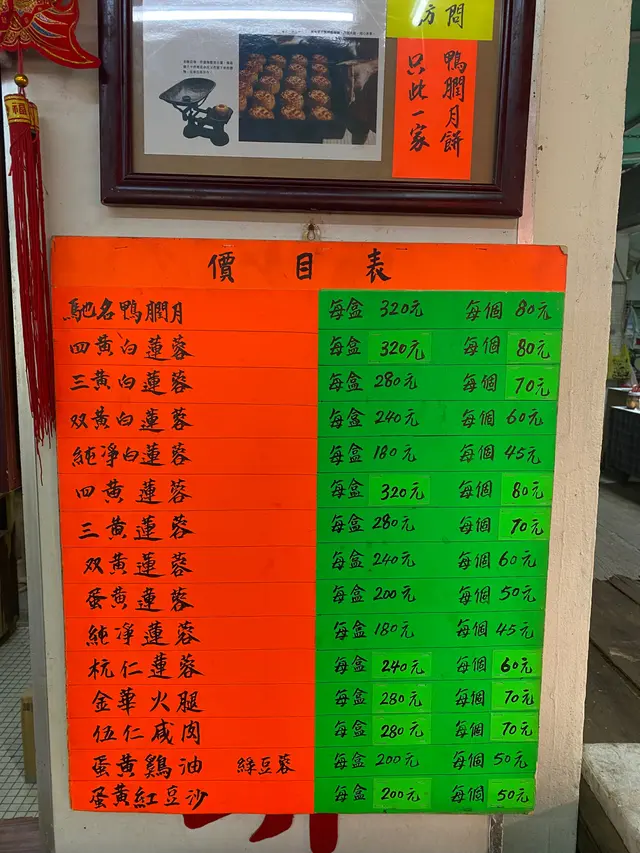 訪問
鴨膶月餅
只此一家
價目表
馳名鴨膶月 每盒 320元 每個 80元
四黄白蓮蓉 每盒 320元 每個 80元
三黄白蓮蓉 每盒 280元 每個 70元
双黄白蓮蓉 每盒 240元 每個 60元
純凈白蓮蓉 每盒 180元 每個 45元
四黄蓮蓉 每盒 320元 每個 80元
三黄蓮蓉 每盒 280元 每個 70元
双黄蓮蓉 每盒 240元 每個 60元
蛋黄蓮蓉 每盒 200元 每個 50元
純凈蓮蓉 每盒 180元 每個 45元
杬仁蓮蓉 每盒 240元 每個 60元
金華火腿 每盒 280元 每個 70元
伍仁咸肉 每盒 280元 每個 70元
蛋黄鷄油 綠豆蓉 每盒 200元 每個 50元
蛋黄紅豆沙 每盒 200元 每個 50元